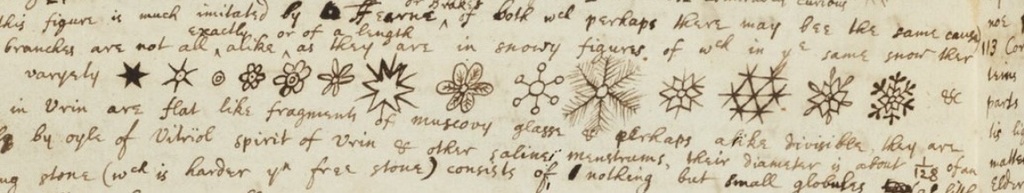 or Brakes
this figure is much imitated by Fearne ^ of both wch perhaps there may bee the same cause
exactly or of a length
branches are not all ^ alike ^ as they are in snowy figures. of wch in ye same snow ther
varyety &c
in Urin are flat like fragments of muscovy glasse & perhaps alike divisible, they are
by oyle of Vitriol spirit of Urin & other saline menstrums, their diameter is about 1/128 of an
stone (wch is harder yn free stone) consists of nothing but small globules